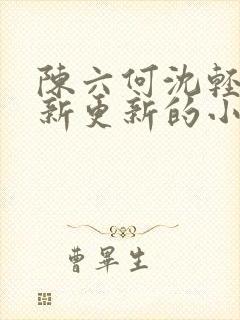 陳六何沈輕
新更新的小
曹畢生